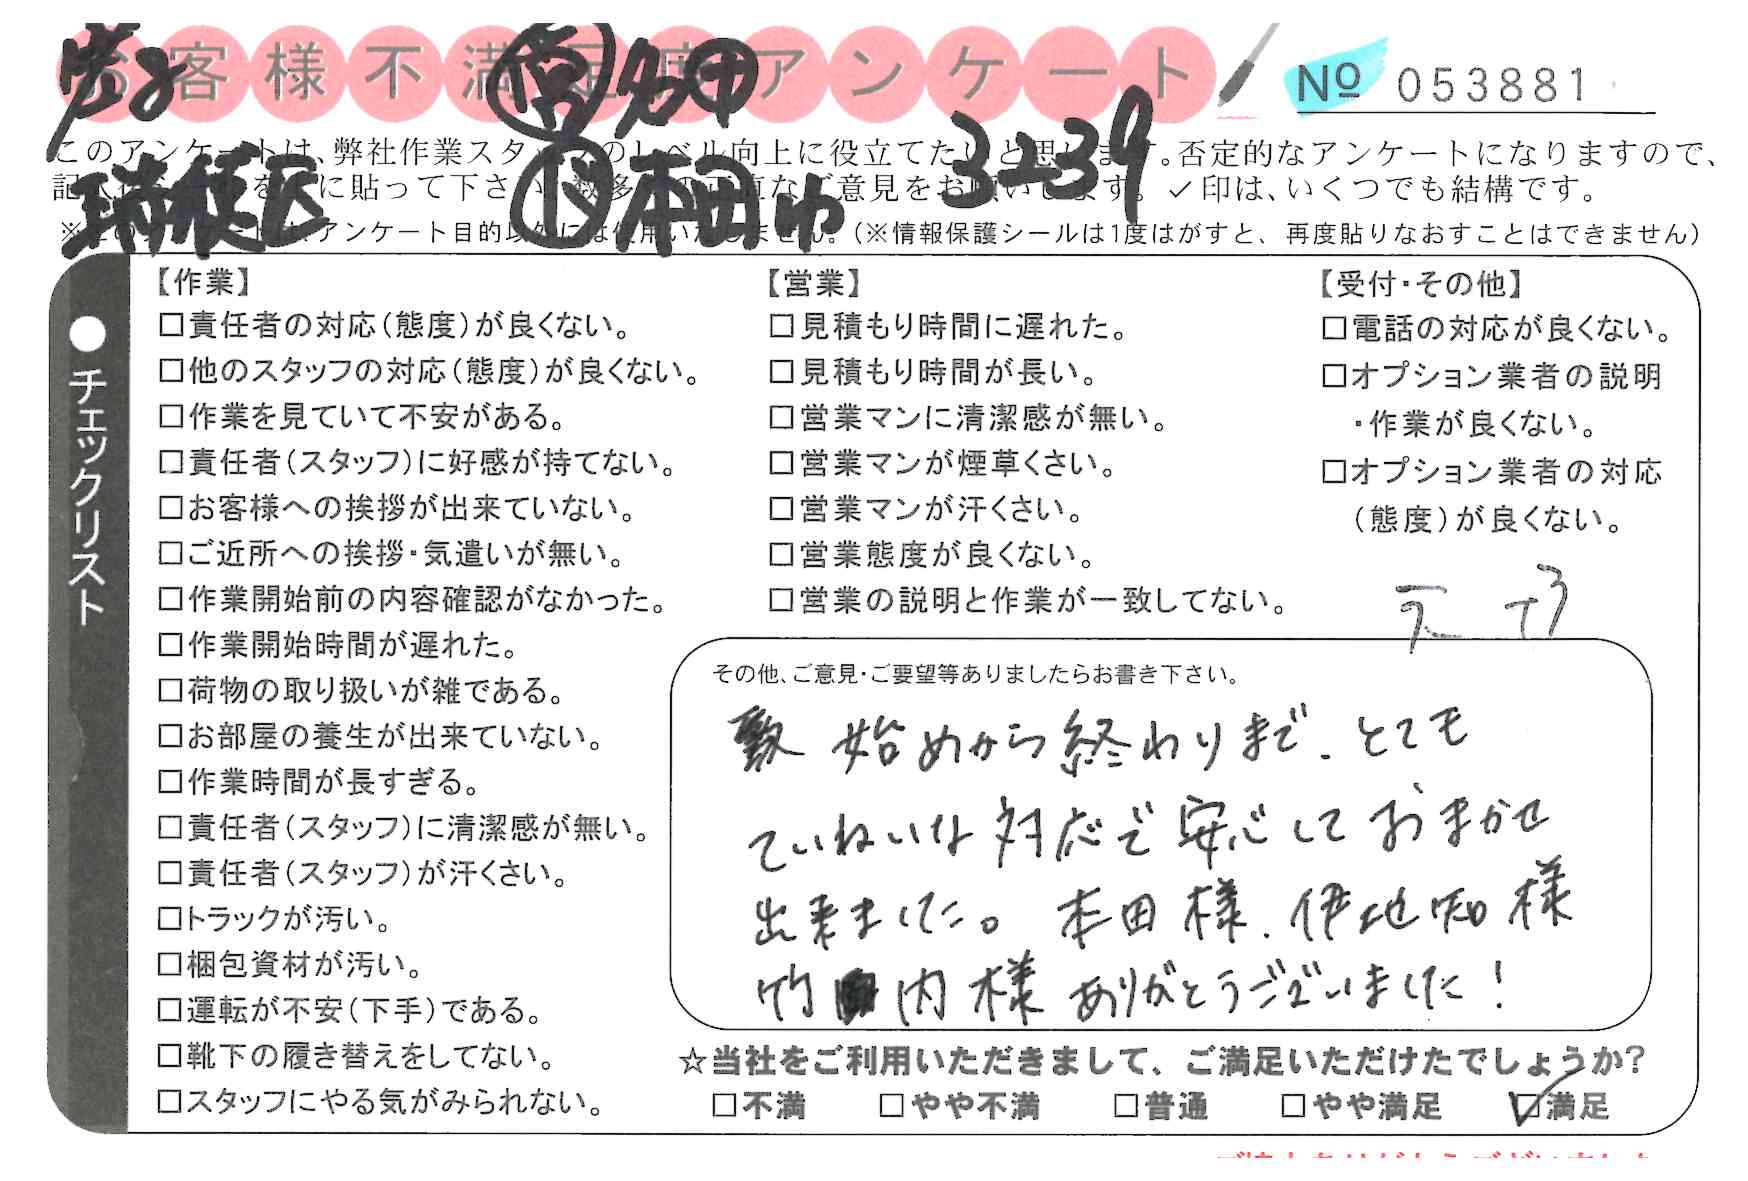 お客様不満足度アンケート
№ 053881
3239
瑞穂区
営
作 本田ゆ
このアンケートは、弊社作業スタッフのレベル向上に役立てたいと思います。否定的なアンケートになりますので、
に貼って下さい。数多 正直なご意見をお願いします。✓印は、いくつでも結構です。
※このアンケートは、アンケート目的以外には使用いたしません。(※情報保護シールは1度はがすと、再度貼りなおすことはできません)
●チェックリスト
【作業】
□責任者の対応(態度)が良くない。
□他のスタッフの対応(態度)が良くない。
□作業を見ていて不安がある。
□責任者(スタッフ)に好感が持てない。
□お客様への挨拶が出来ていない。
□ご近所への挨拶・気遣いが無い。
□作業開始前の内容確認がなかった。
□作業開始時間が遅れた。
□荷物の取り扱いが雑である。
□お部屋の養生が出来ていない。
□作業時間が長すぎる。
□責任者(スタッフ)に清潔感が無い。
□責任者(スタッフ)が汗くさい。
□トラックが汚い。
□梱包資材が汚い。
□運転が不安(下手)である。
□靴下の履き替えをしてない。
□スタッフにやる気がみられない。
【営業】
□見積もり時間に遅れた。
□見積もり時間が長い。
□営業マンに清潔感が無い。
□営業マンが煙草くさい。
□営業マンが汗くさい。
□営業態度が良くない。
□営業の説明と作業が一致してない。
【受付・その他】
□電話の対応が良くない。
□オプション業者の説明
・作業が良くない。
□オプション業者の対応
(態度)が良くない。
その他、ご意見・ご要望等ありましたらお書き下さい。
始めから終わりまで、とても
ていねいな対応で安心しておまかせ
出来ました。本田様、伊地知様
竹内様ありがとうございました!
☆当社をご利用いただきまして、ご満足いただけたでしょうか?
□不満 □やや不満 □普通 □やや満足 ☑満足